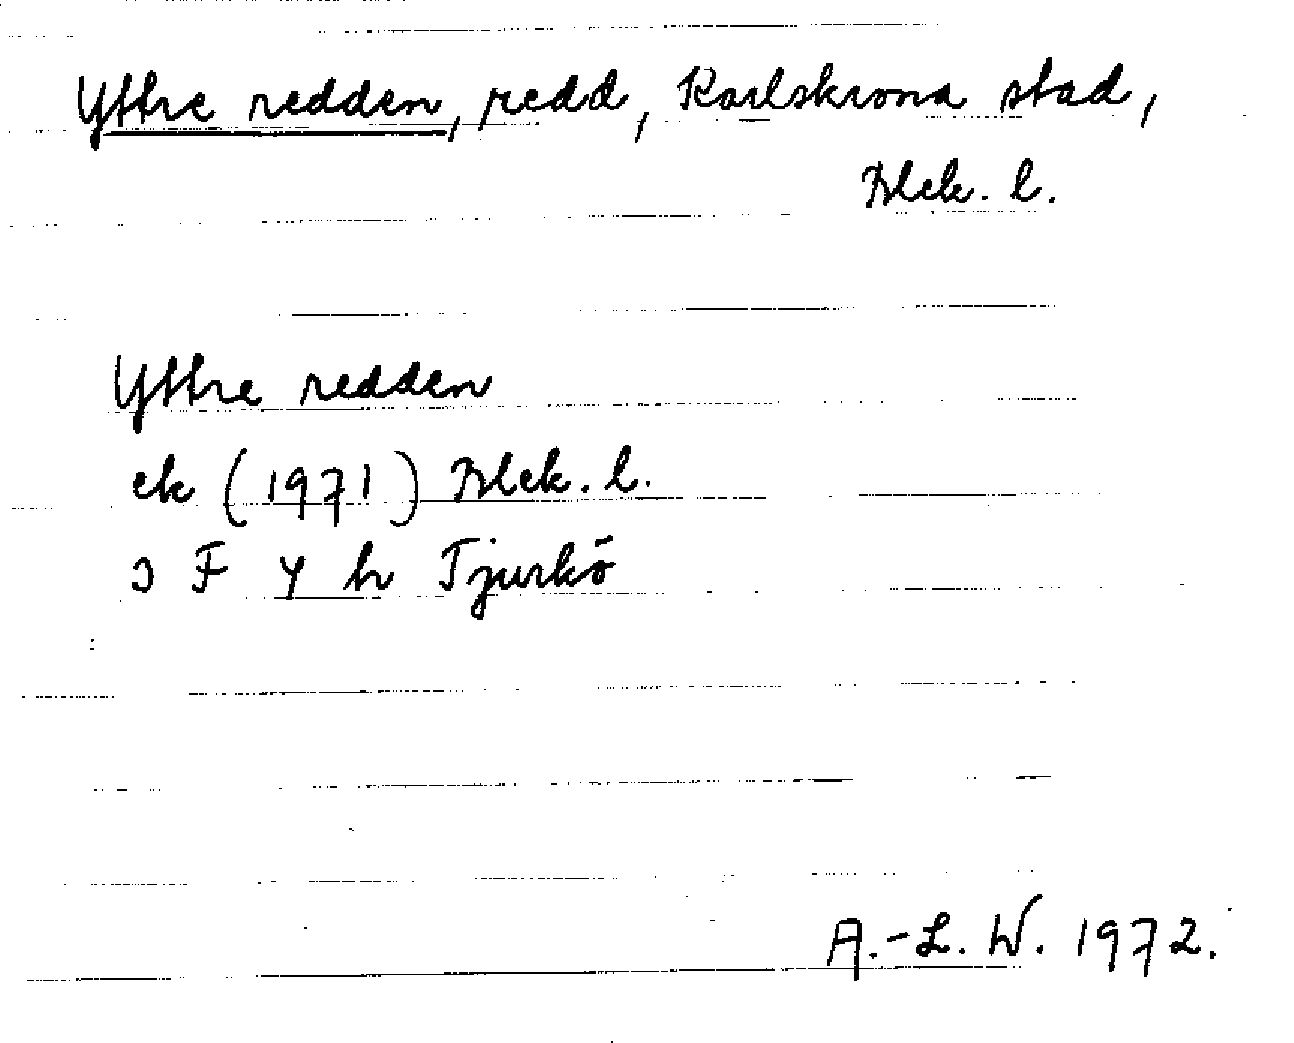 Yttre redden, redd, Karlskrona stad,
Blek. l.
Yttre redden
ek (1971) Blek. l.
3 F 4 h Tjurkö
A.-L. W. 1972.